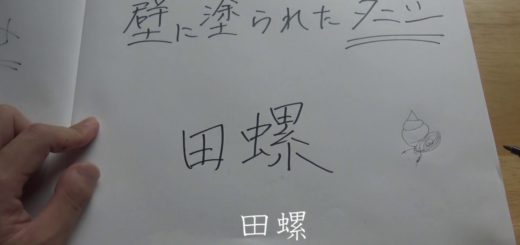 壁に塗られたタニシ
田螺
田螺